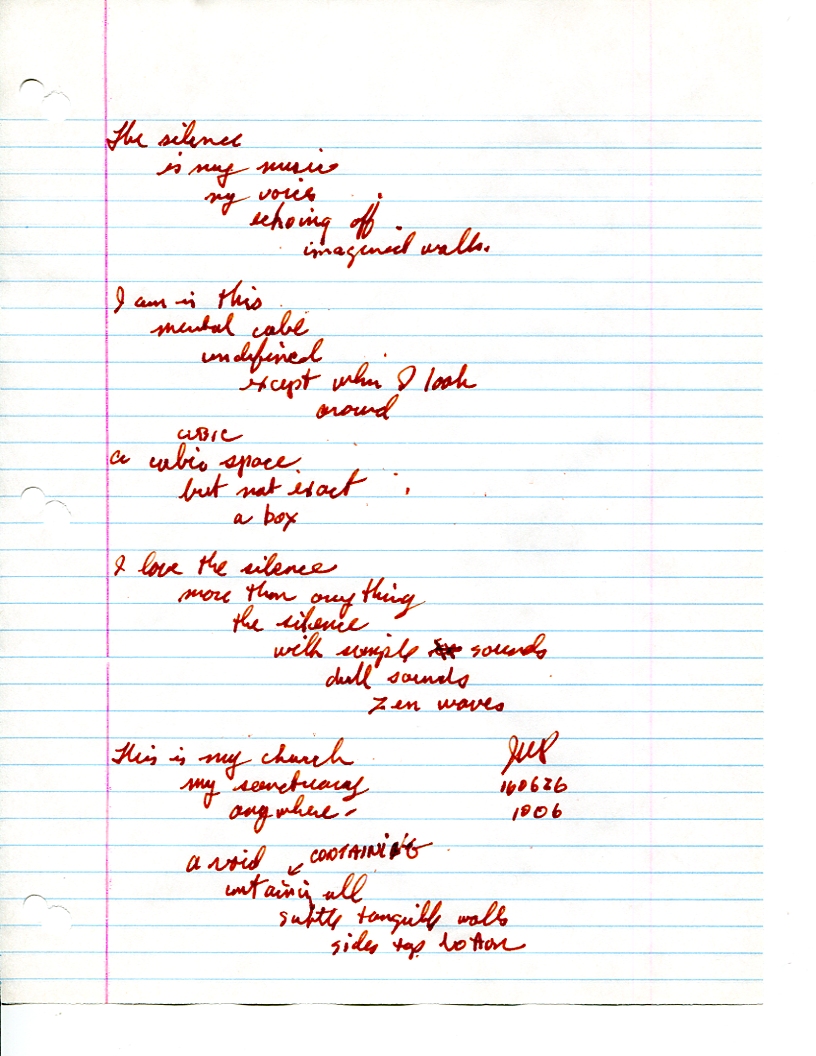 The silence
is my music
my voice
echoing off
imagined walls.
I am in this
mental cube
undefined
except when I look
around
CUBIC
a cubic space
but not exact
a box
I love the silence
more than anything
the silence
with simple sounds
dull sounds
zen waves
This is my church
my sanctuary
anywhere -
160626
1006
a void CONTAINING
containing all
subtle tangible walls
sides top bottom